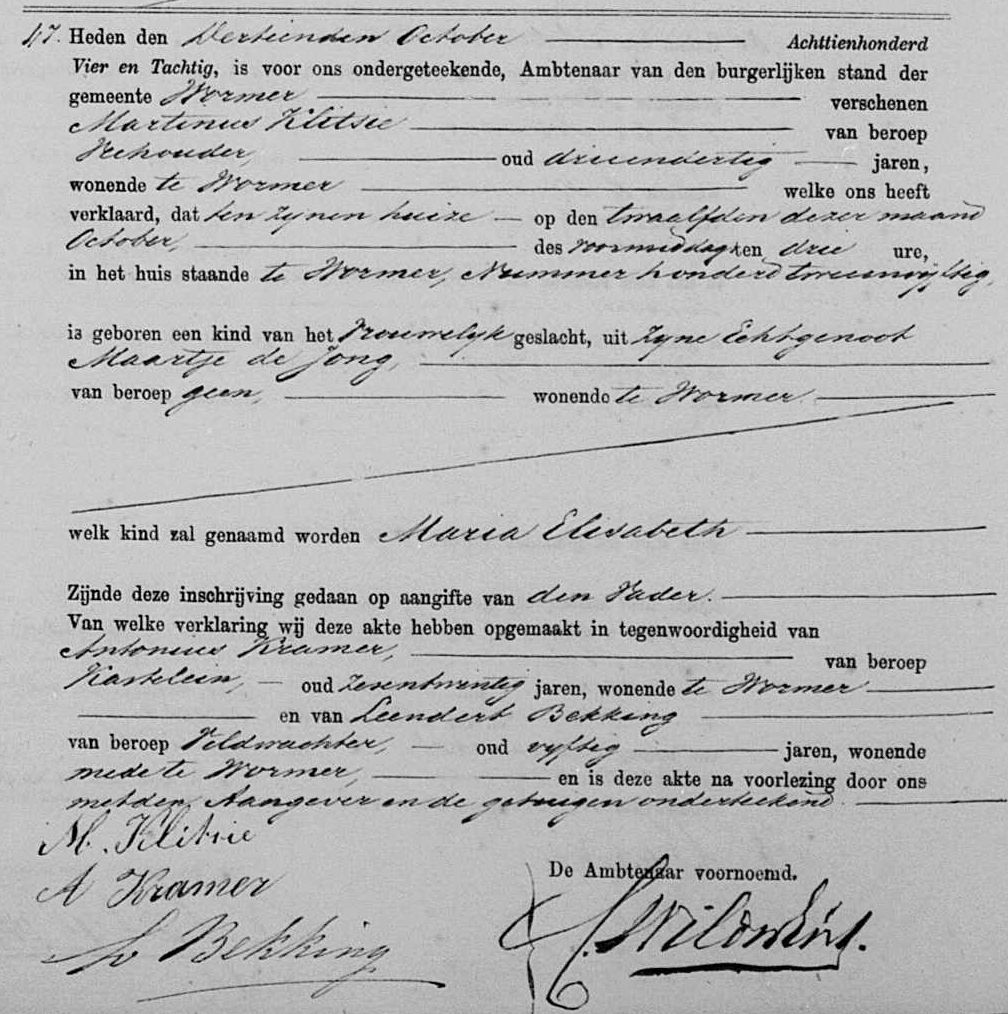 47. Heden den Dertienden October Achttienhonderd
Vier en Tachtig, is voor ons ondergeteekende, Ambtenaar van den burgerlijken stand der
gemeente Wormer verschenen
Martinus Klitsie van beroep
Veehouder, oud drieendertig jaren,
wonende te Wormer welke ons heeft
verklaard, dat ten zynen huize op den twaalfden dezer maand
October, des voormiddags ten drie ure,
in het huis staande te Wormer, Nummer honderd tweeenvyftig,
is geboren een kind van het Vrouwelyk geslacht, uit zyne Echtgenoot
Maartje de Jong,
van beroep geen, wonende te Wormer.
welk kind zal genaamd worden Maria Elisabeth
Zijnde deze inschrijving gedaan op aangifte van den Vader.
Van welke verklaring wij deze akte hebben opgemaakt in tegenwoordigheid van
Antonius Kramer, van beroep
Kastelein, oud zesentwintig jaren, wonende te Wormer
en van Leendert Bekking
van beroep Veldwachter, oud vyftig jaren, wonende
mede te Wormer, en is deze akte na voorlezing door ons
met den Aangever en de getuigen onderteekend.
M. Klitsie
De Ambtenaar voornoemd.
A Kramer
L Bekking